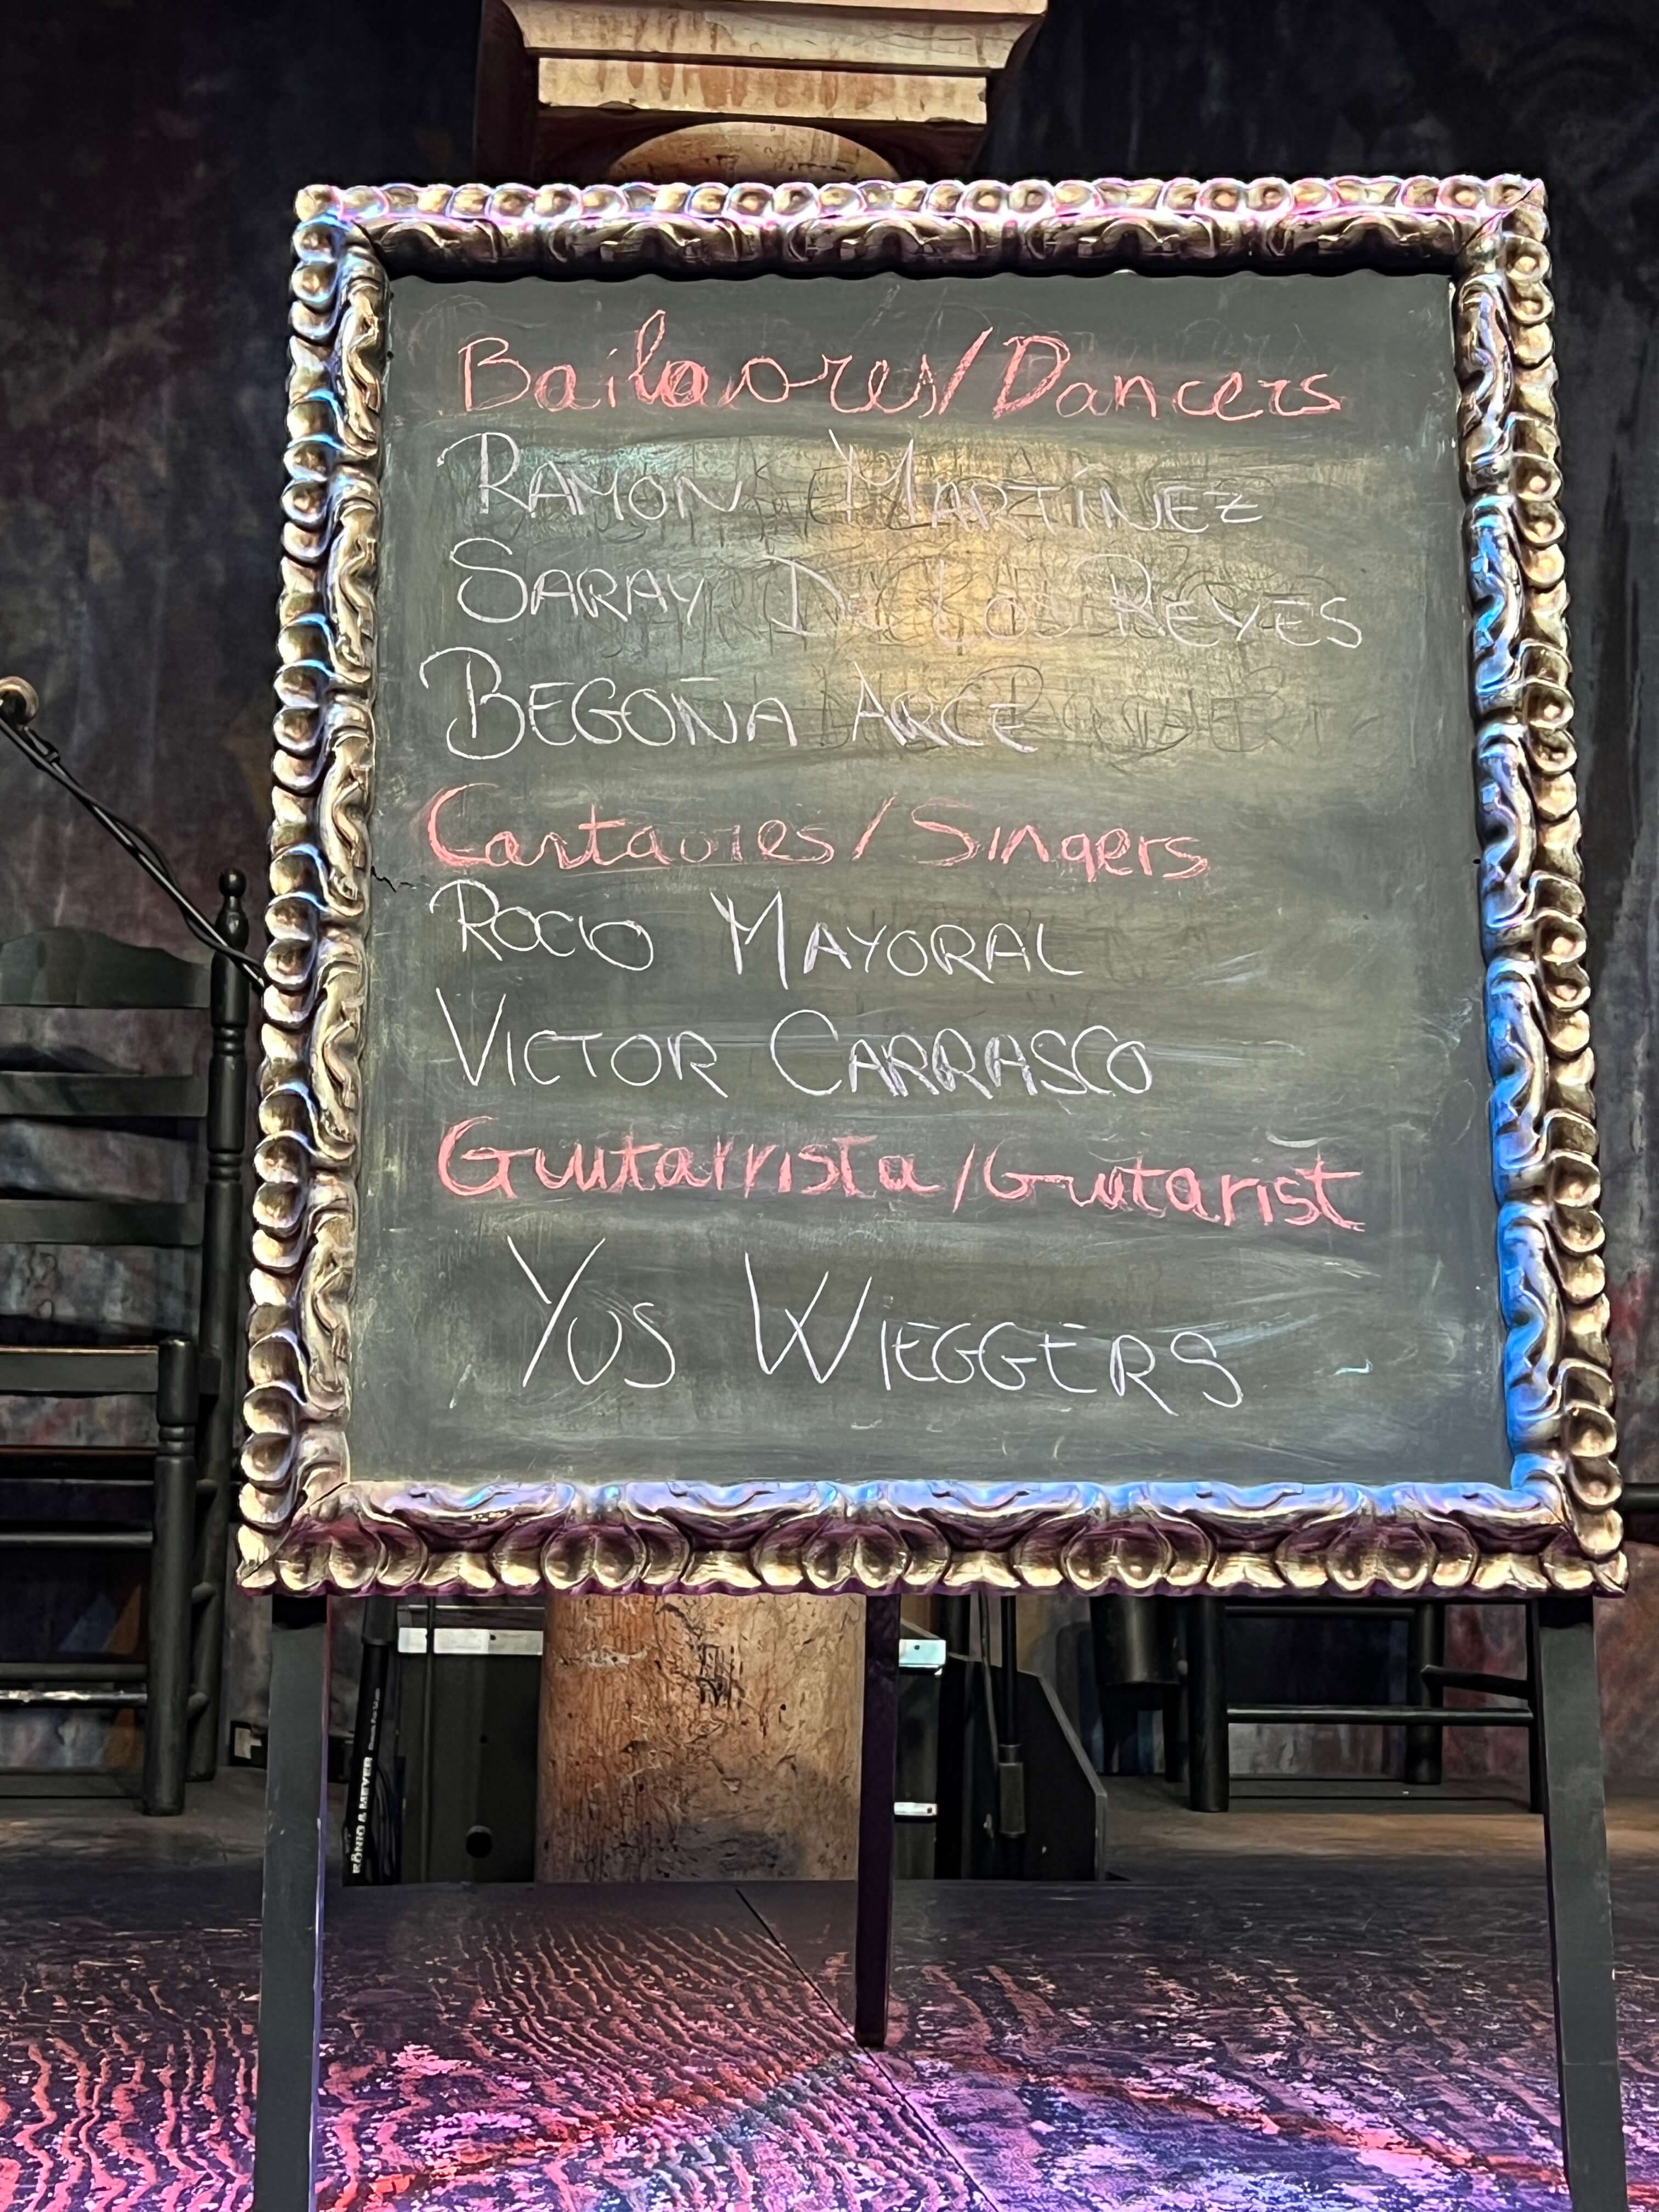 Bailaores/Dancers
RAMON MARTINEZ
SARAY DE LOS REYES
BEGOÑA ARCE
Cantaores/Singers
ROCIO MAYORAL
VICTOR CARRASCO
Guitarrista/Guitarist
YUS WIEGGERS
KÖNIG & MEYER